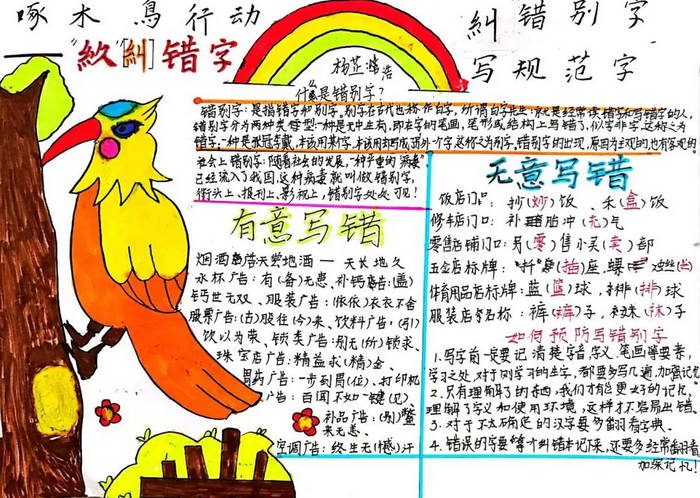 啄木鸟行动
糾错别字
写规范字
"糾"错字
杨芷浩
什么是错别字?
错别字:是指错字和别字。别字在古代也称作白字,所谓白字先生,就是经常读错字和写错字的人,
错别字分为两种类型:一种是无中生有,即在字的笔画,笔形或结构上写错了,似字非字,这称之为
错字;一种是张冠李戴,本该用某字,本该用却写成另外个字,这称之为别字,错别字的出现,原因为主观的也有客观的
社会上错别字:随着社会的发展,一种严重的"病毒"
已经流入了我国,这种病毒就叫做错别字,
街头上、报刊上、影视上,错别字处处可见!
有意写错
烟酒 天常地酒 — 天长地久
水杯广告:有(备)无患、补钙广告:(盖)
钙世无双、服装广告:(依依)衣衣不舍
股票广告:(古)股往(今)来、饮料广告:(引)
饮以为荣、锁类广告:别无(所)锁求、
珠宝店广告:精益求(精)金、
胃药广告:一步到胃(位)、打印机
广告:百闻不如一键(见)
补品广告:(别)鳖
来无恙、
空调广告:终生无(憾)汗
无意写错
饭店门口:抄(炒)饭、禾(盒)饭
修车店门口:补胎冲(充)气
零售铺门口:另(零)售小买(卖)部
五金店标牌:"扦"(插)座、螺(丝)
体育用品店标牌:蓝(篮)球、排(排)球
服装店名称:裤(裤)子、袜(袜)子
如何预防写错别字
1.写字前一定要记清楚字音、字义、笔画等要素,
学习之处,对于刚学习的生字,都要多写几遍,加强记忆
2.只有理解了的东西,我们才能更好的记忆,
理解了字义和使用环境,这样才不容易出错,
3.对于不太确定的汉字要多翻看字典。
4.错误的字要单个纠错本记下来,还要多经常翻看
加深记忆!